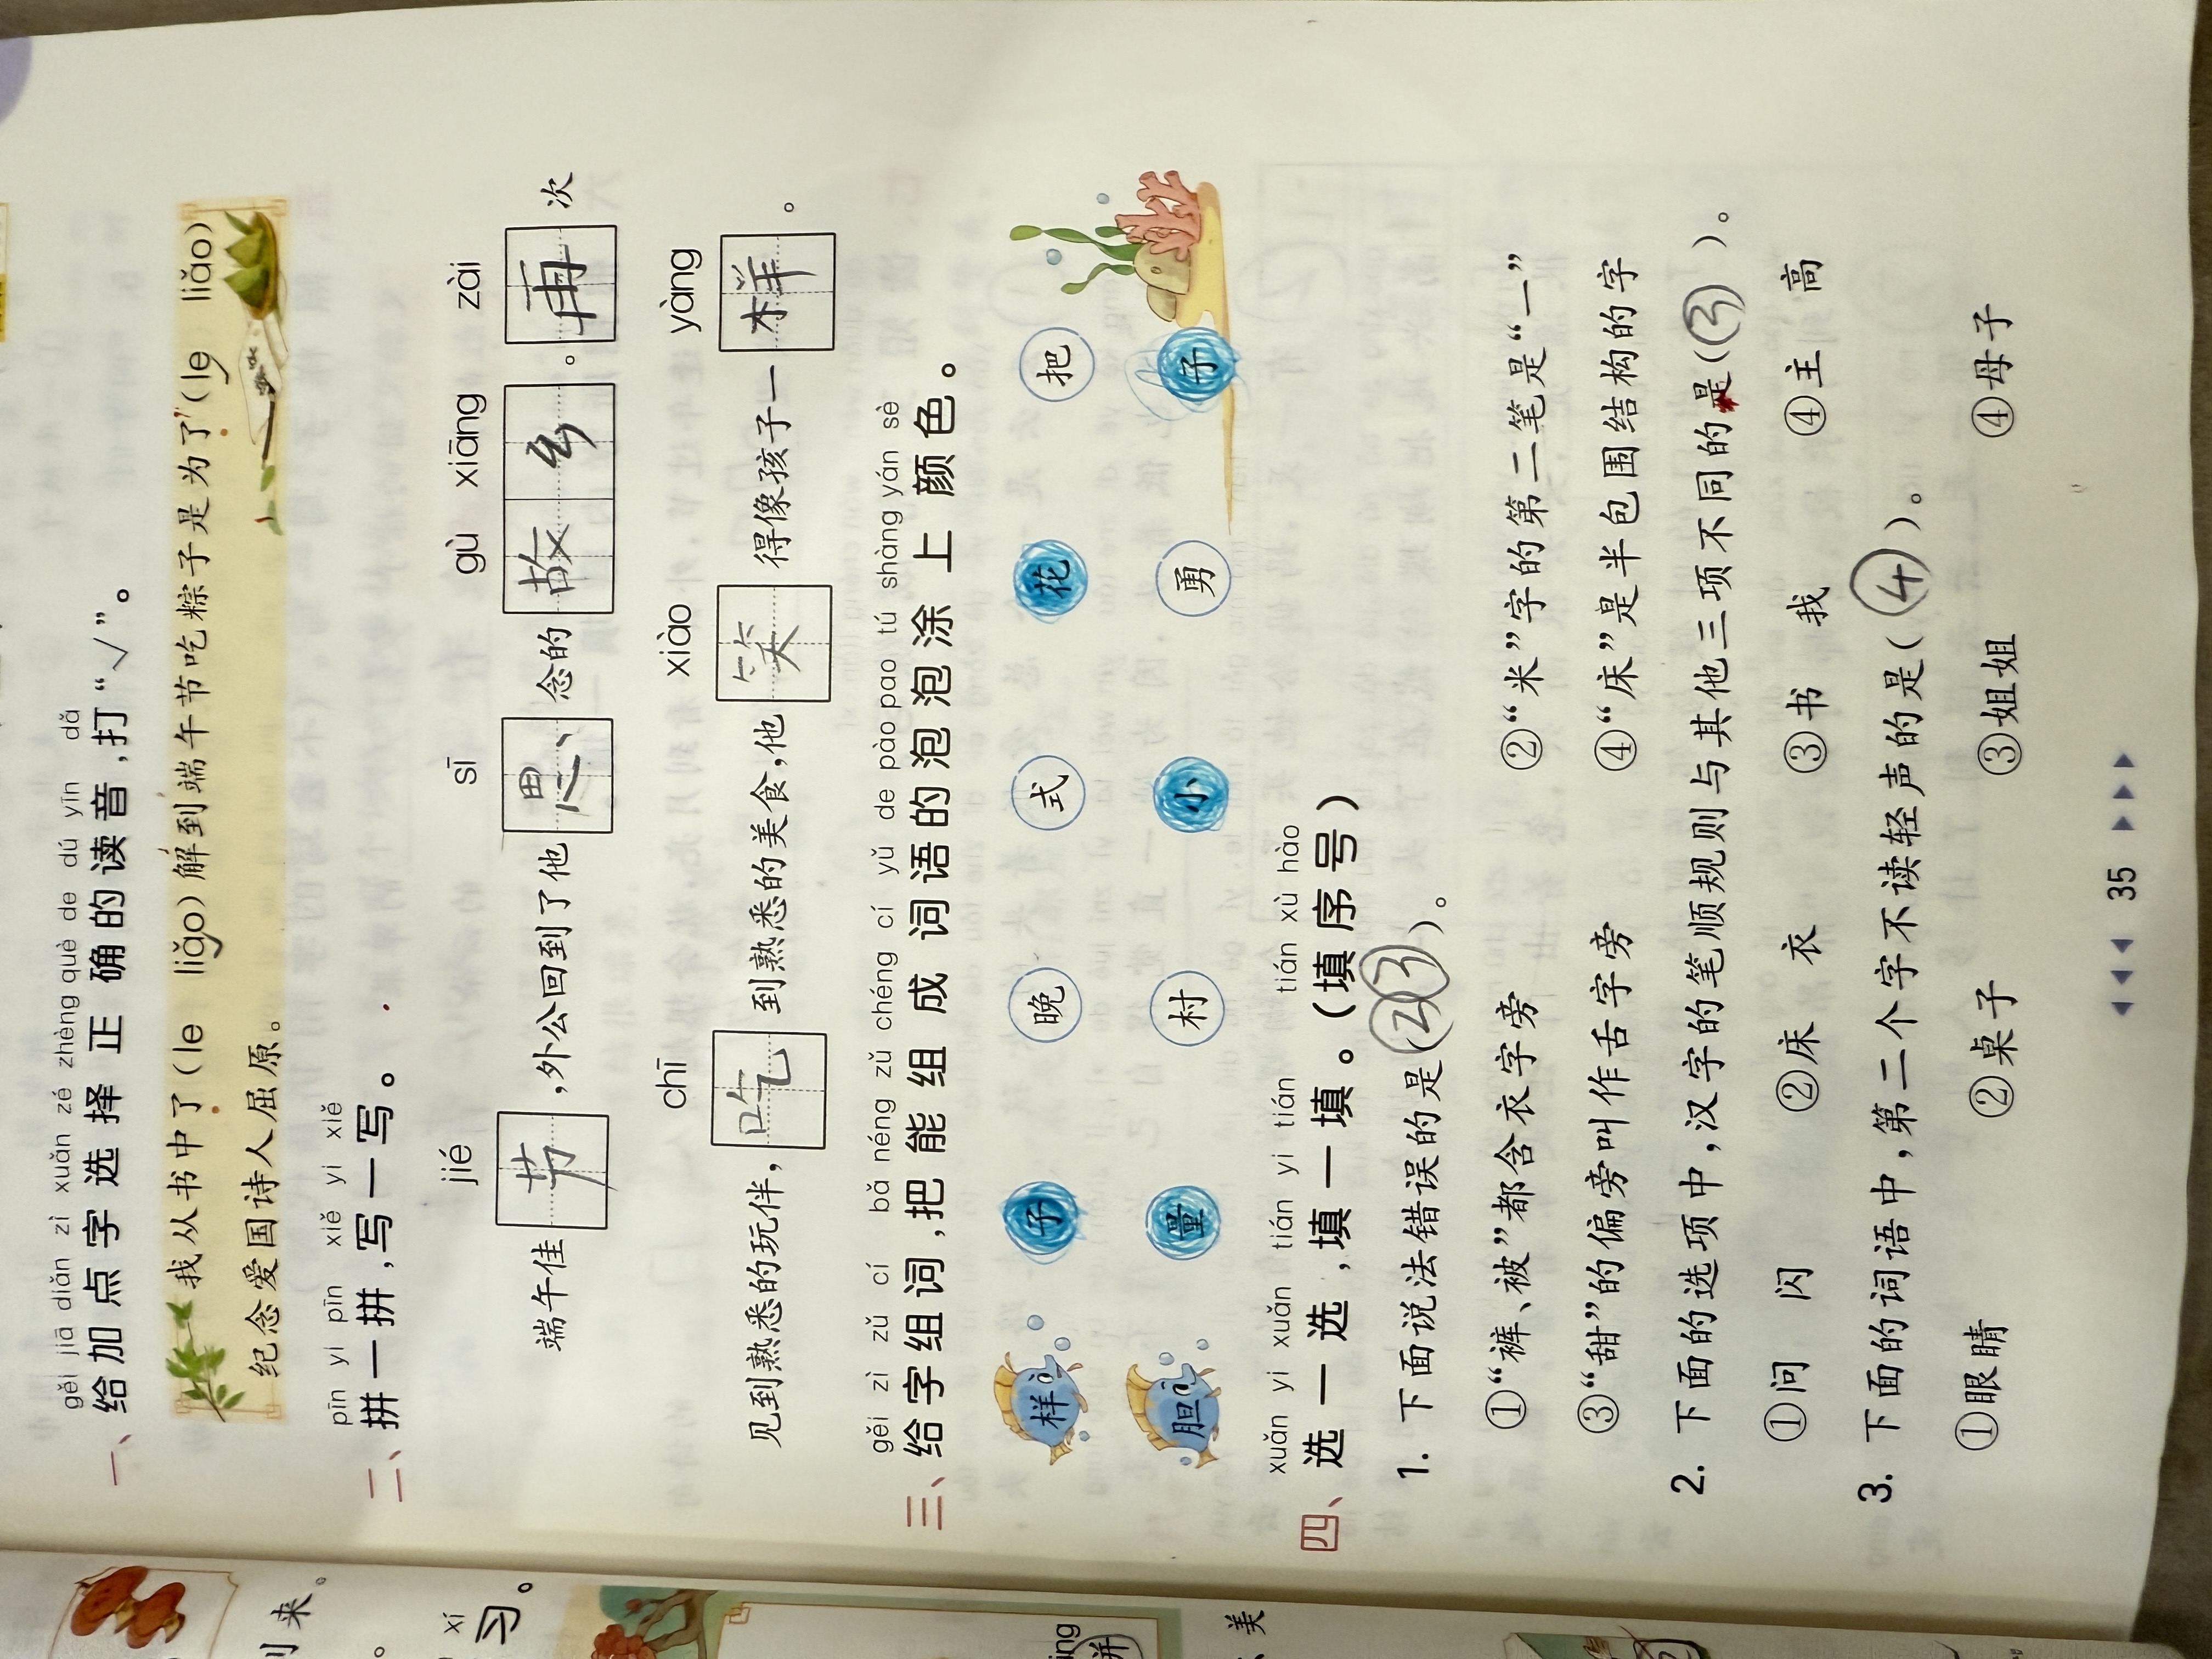 gěi jiā diǎn zì xuǎn zé zhèng què de dú yīn dǎ
一、给加点字选择正确的读音,打“√”。
我从书中了(le liǎo)解到端午节吃粽子是为了(le liǎo)
纪念爱国诗人屈原。
pīn yi pīn xiě yi xiě
二、拼一拼,写一写。
jié sī gù xiāng zài
端午佳节,外公回到了他思念的故乡。再次
chī xiào yàng
见到熟悉的玩伴,吃到熟悉的美食,他笑得像孩子一样。
gěi zì zǔ cí bǎ néng zǔ chéng cí yǔ de pào pao tú shàng yán sè
三、给字组词,把能组成词语的泡泡涂上颜色。
样 子 晚 式 花 把
胆 量 村 小 勇 子
xuǎn yi xuǎn tián yi tián tián xù hào
四、选一选,填一填。(填序号)
1. 下面说法错误的是(②③)。
①“裤、被”都含衣字旁 ②“米”字的第二笔是“一”
③“甜”的偏旁叫作舌字旁 ④“床”是半包围结构的字
2. 下面的选项中,汉字的笔顺规则与其他三项不同的是(③)。
①问 闪 ②床 衣 ③书 我 ④主 高
3. 下面的词语中,第二个字不读轻声的是(④)。
①眼睛 ②桌子 ③姐姐 ④母子
35
来。
xí
习。
美